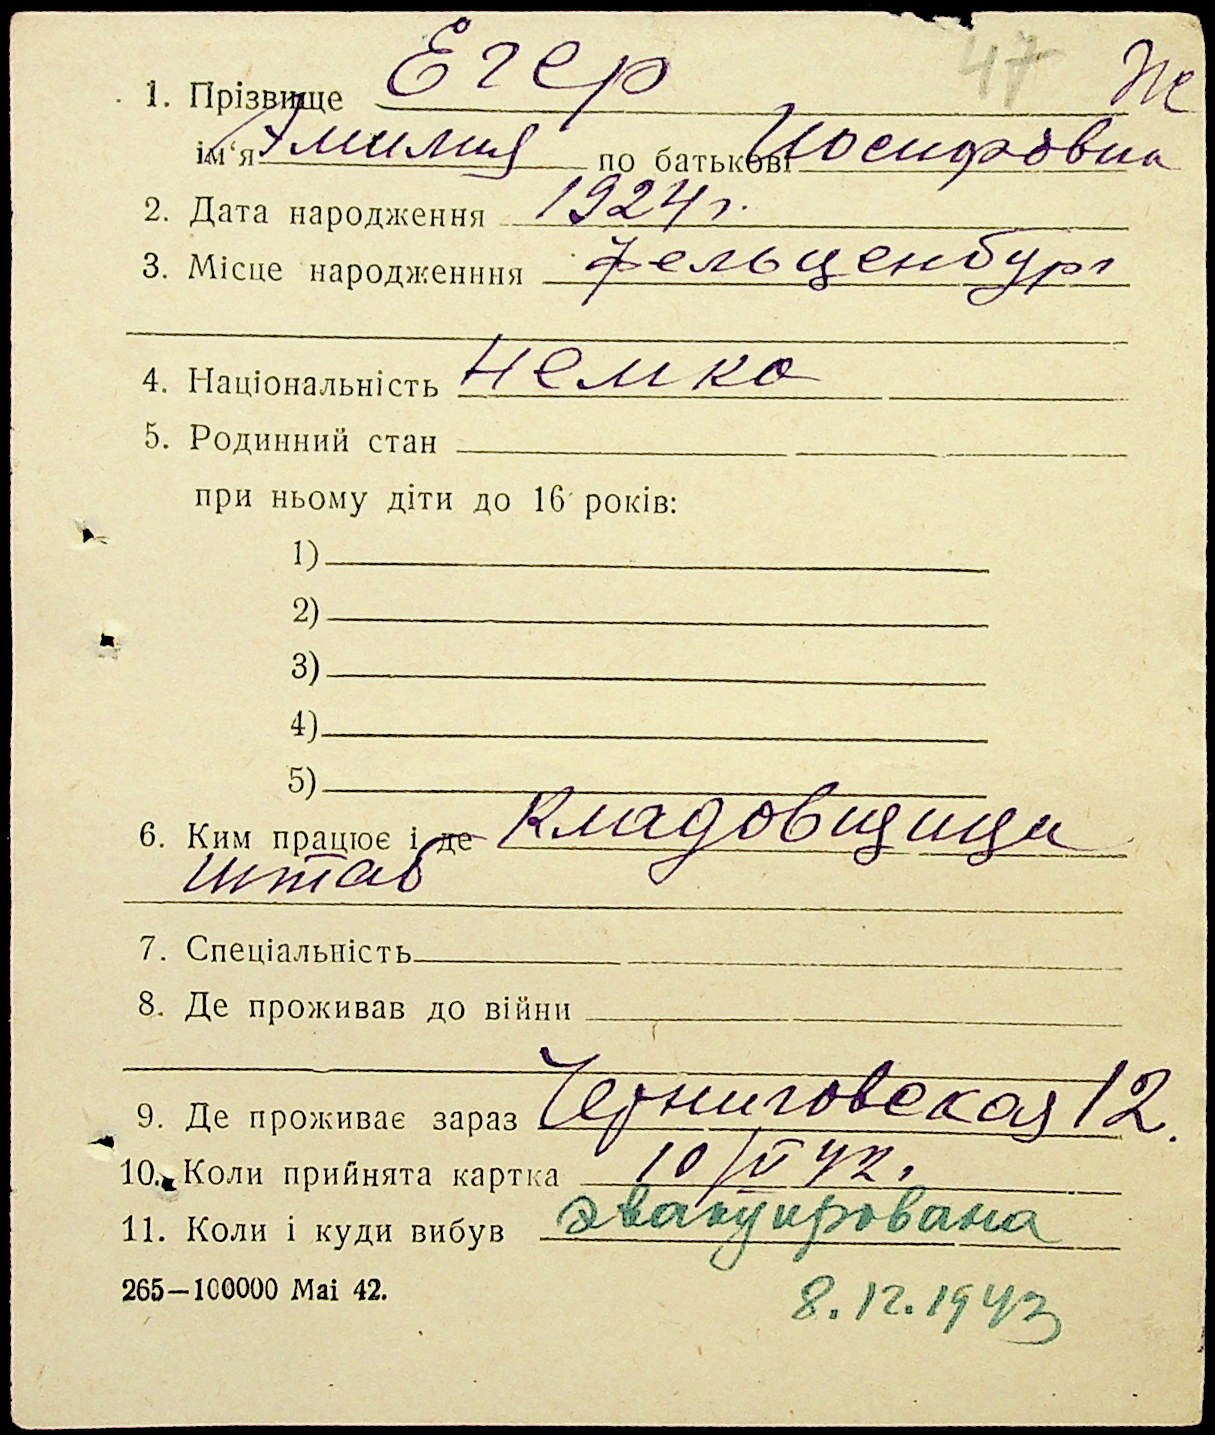 47 Ж
1. Прізвище Егер
ім‘я Эмилия по батькові Иосифовна
2. Дата народження 1924 г.
3. Місце народженння Фельценбург
4. Національність немка
5. Родинний стан
при ньому діти до 16 років:
1)
2)
3)
4)
5)
6. Ким працює і де Кладовщица
штаб
7. Спеціальність
8. Де проживав до війни
9. Де проживає зараз Черниговская 12.
10. Коли прийнята картка 10/V 42.
11. Коли і куди вибув эвакуирована
265—100000 Mai 42.
8.12.1943